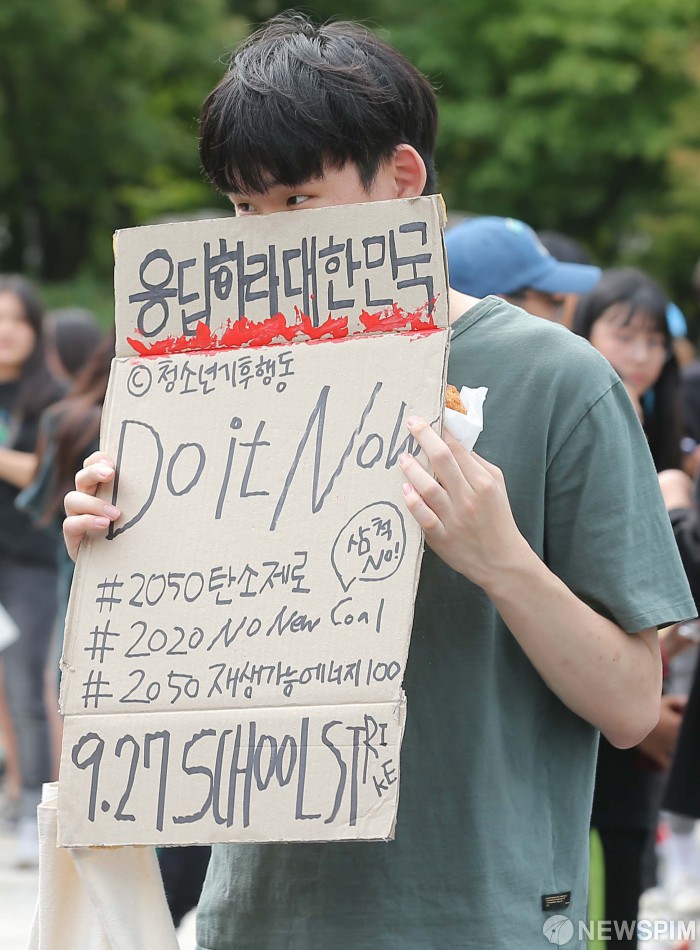 응답하라 대한민국
© 청소년기후행동
Do it Now
삼척
No!
#2050 탄소제로
#2020 No New Coal
#2050 재생가능에너지 100
9.27 SCHOOL STRIKE
NEWSPIM